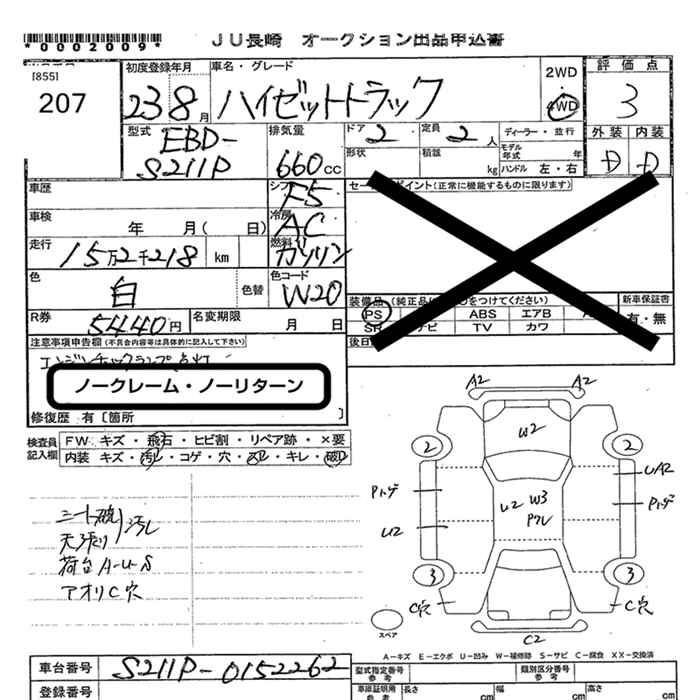 *0002009*
JU長崎 オークション出品申込書
[855]
207
初度登録年月
23 8月
車名・グレード
ハイゼットトラック
2WD
4WD
評価点
3
型式
EBD-
S211P
排気量
660cc
ドア
2
定員
2人
ディーラー・並行
モデル年式 年
形状
積載
kg
ハンドル 左・右
外装 内装
D D
車歴
シフト
F5
車検
年 月( 日)
冷房
AC
走行
15万2千218 km
燃料
ガソリン
色
白
色替
色コード
W20
R券
5440円
名変期限
月 日
セールスポイント(正常に機能するものに限ります)
装備品(純正品に○をつけてください)
PS
ABS
エアB
SR
ナビ
TV
カワ
新車保証書
有・無
後日
注意事項申告欄(不具合内容等は具体的に記入して下さい)
エンジンチェックランプ点灯
ノークレーム・ノーリターン
修復歴 有〔箇所 〕
検査員記入欄
FW キズ・飛石・ヒビ割・リペア跡・×要
内装 キズ・汚レ・コゲ・穴・スレ・キレ・破レ
シート破 汚レ
天張リ
荷台A-U-S
アオリC穴
A2 A2
W2
2 2
UA2
Pトゲ
U2 W3
Pトゲ
Pワレ
U2
3 3
C穴
C穴
C2
スペア
A-キズ E-エクボ U-凹み W-補修跡 S-サビ C-腐食 XX-交換済
車台番号
S211P-0152262
登録番号
型式指定番号
参考
類別区分番号
参考
車庫証明用
参考
長さ
cm
幅
cm
高さ
cm